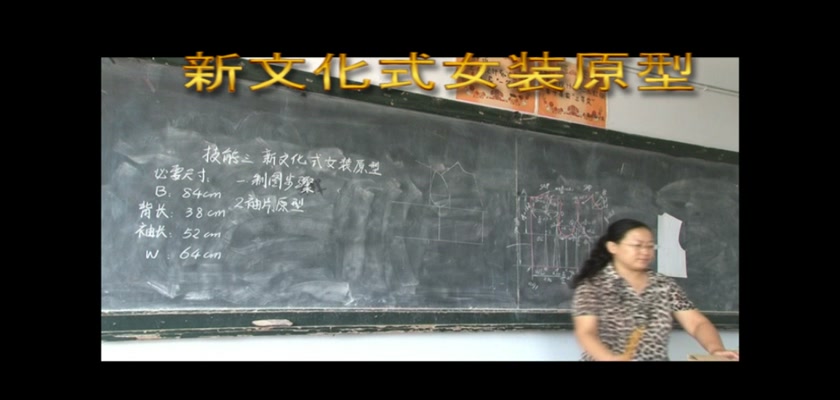 新文化式女装原型
技能三 新文化式女装原型
必要尺寸:
一制图步骤
B: 84cm
2袖片原型
背长: 38cm
袖长: 52cm
W: 64cm